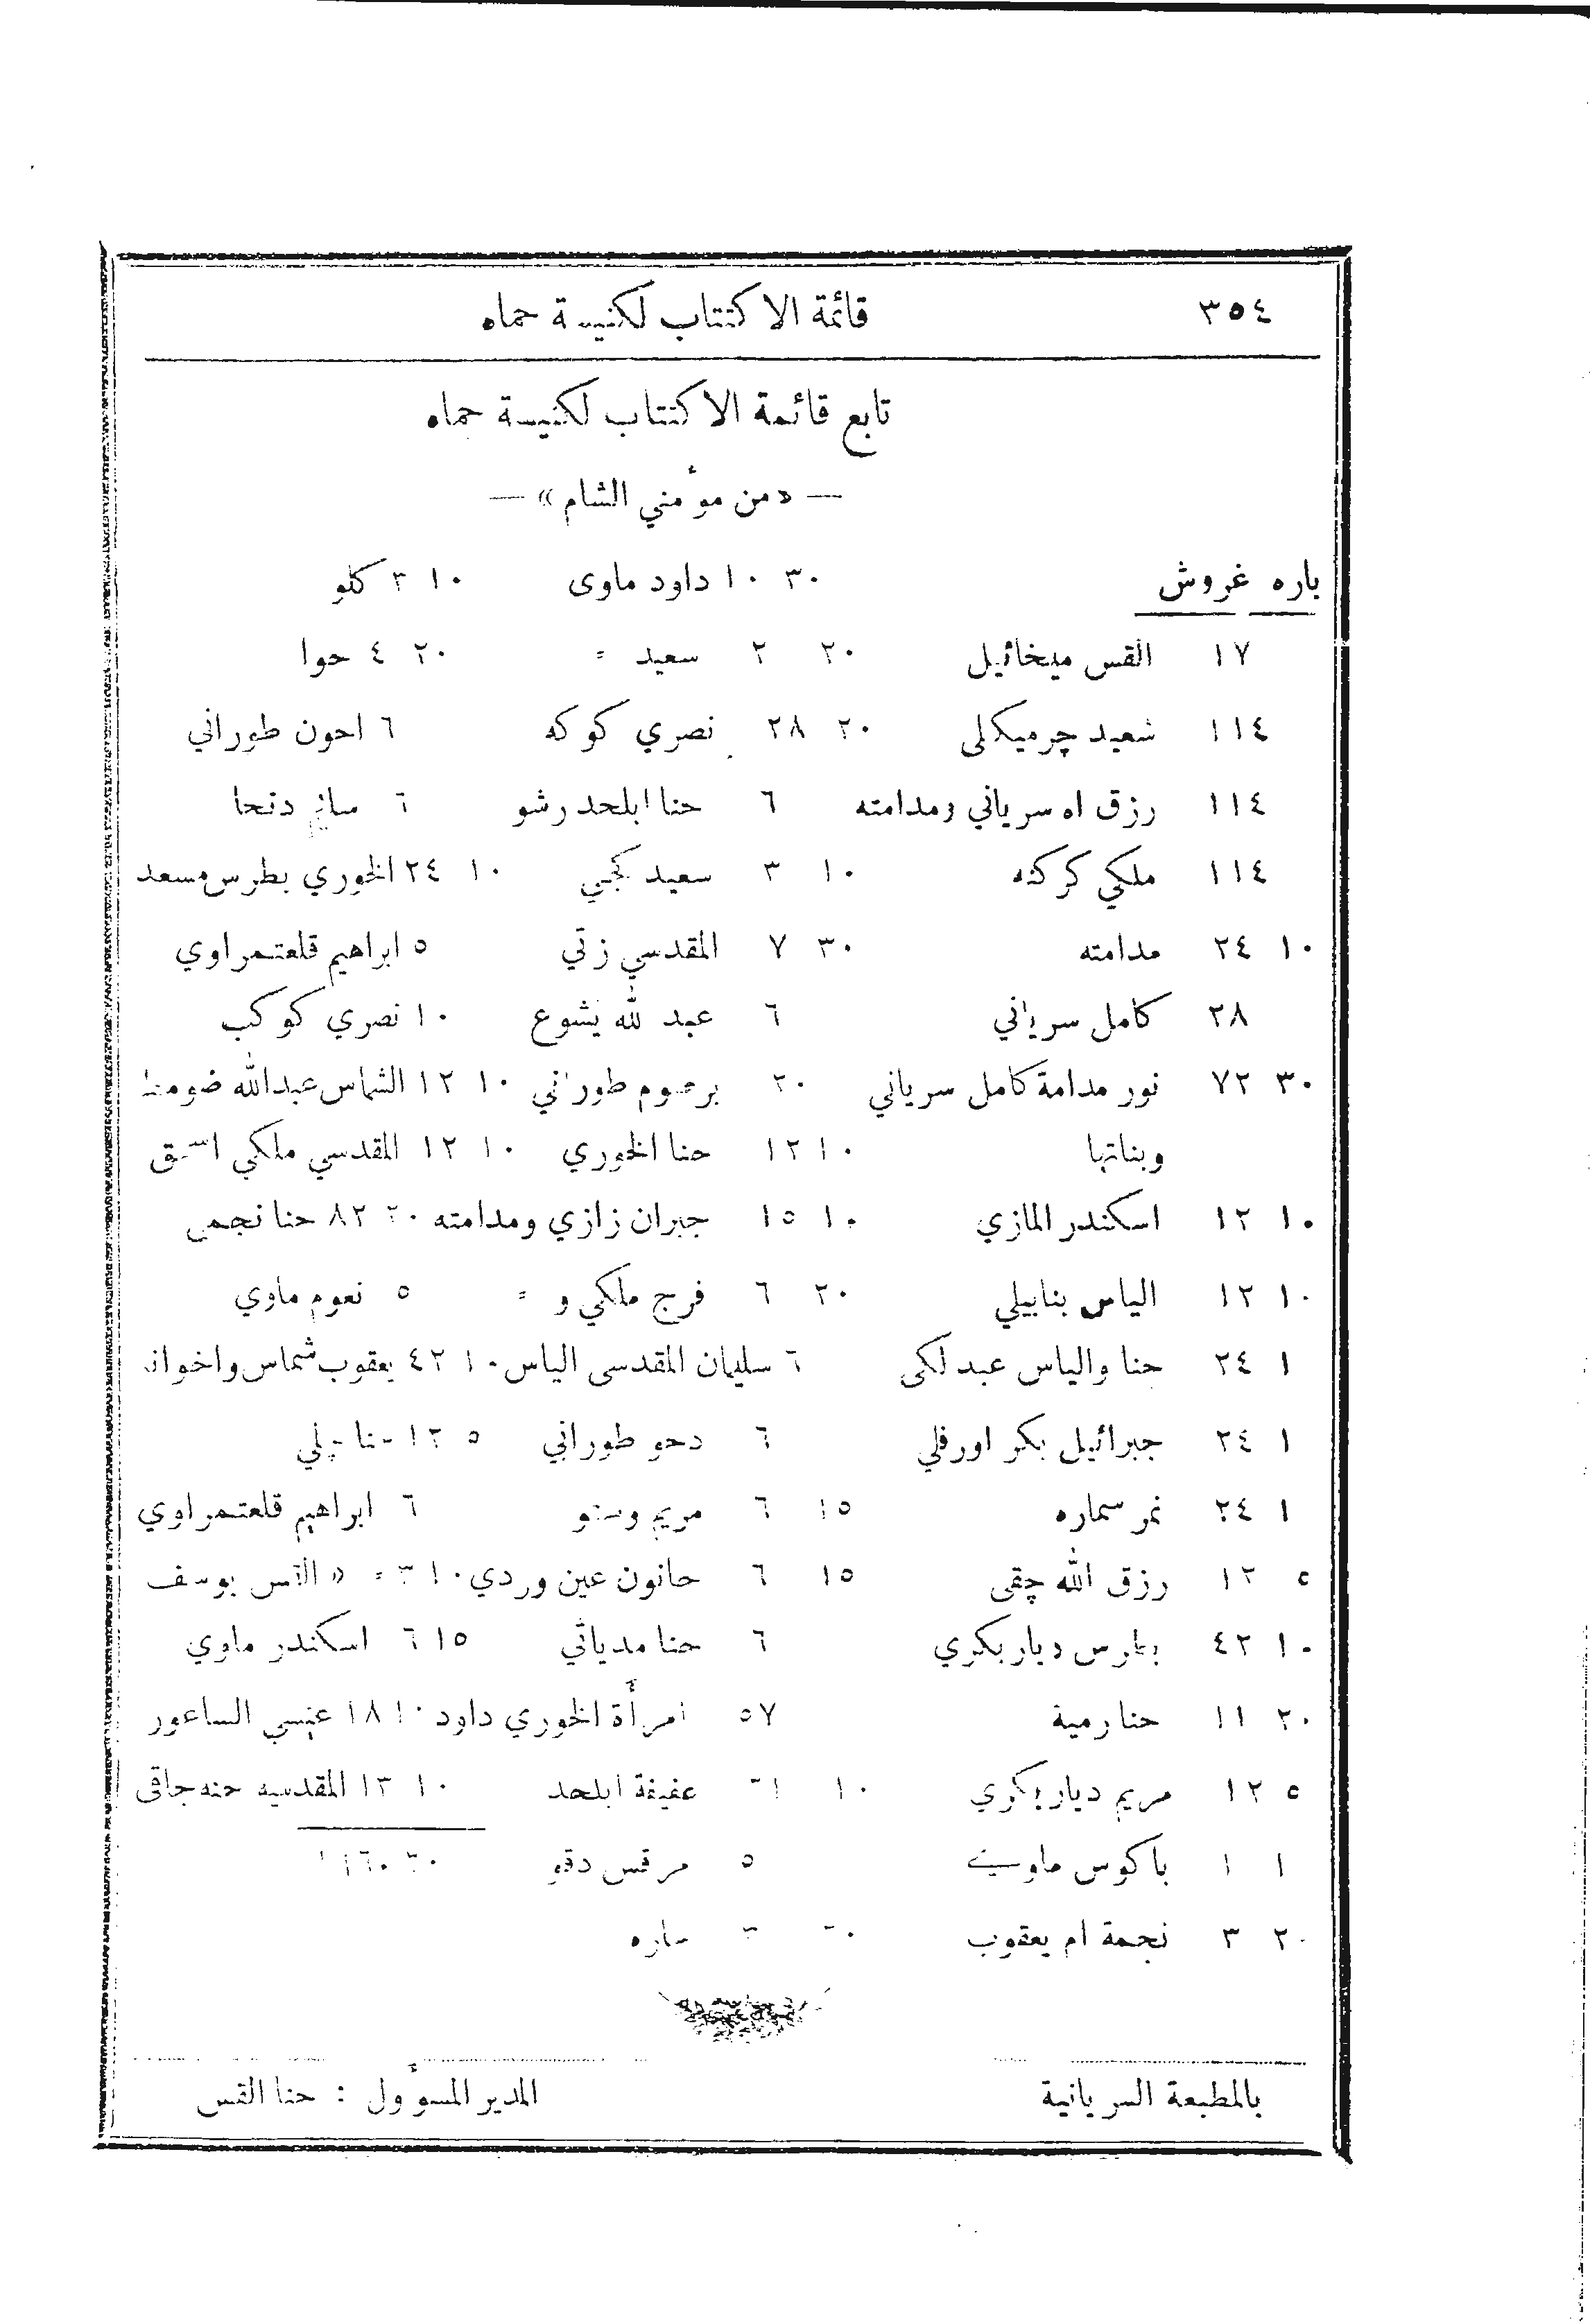 ٣٥٤ قائمة الاكتتاب لكنيسة حماه
تابع قائمة الاكتتاب لكنيسة حماه
— «من مؤمني الشام» —
باره غروش ٣٠ ١٠ داود ماوى ١٠ ٣ كلو
١٧ القس ميخائيل ٢٠ ٢ سعيد = ٢٠ ٤ حوا
١١٤ سعيد چرميكلي ٢٠ ٢٨ نصري كوكه ٦ احون طوراني
١١٤ رزق اه سرياني ومدامته ٦ حنا ابلحد رشو ٦ دنحا
١١٤ ملكي كركنه ١٠ ٣ سعيد كجبي ١٠ ٢٤ الخوري بطرس مسعد
١٠ ٢٤ مدامته ٣٠ ٧ المقدسي زتي ٥ ابراهيم قلعتمراوي
٢٨ كامل سرياني ٦ عبد لله يشوع ١٠ نصري كوكب
٣٠ ٧٢ نور مدامة كامل سرياني ٢٠ برصوم طوراني ١٠ ١٢ الشماس عبدالله ضومط
وبناتها ١٠ ١٢ حنا الخوري ١٠ ١٢ المقدسي ملكي اسحق
١٠ ١٢ اسكندر المازي ١٠ ١٥ جبران زازي ومدامته ٢٠ ٨٢ حنا نجمي
١٠ ١٢ الياس بنابيلي ٢٠ ٦ فرج ملكي و = ٥ نعوم ماوي
١ ٢٤ حنا والياس عبدلكي ٦ سليمان المقدسي الياس ١٠ ٤٢ يعقوب شماس واخوانه
١ ٢٤ جبرائيل بكر اورفلي ٦ دحو طوراني ٥ ١٢
١ ٢٤ نمر سماره ١٥ ٦ مريم ٦ ابراهيم قلعتمراوي
٥ ١٢ رزق الله چقى ١٥ ٦ حانون عين وردي ١٠ ٣ = « القس يوسف
١٠ ٤٢ بطرس دياربكري ٦ حنا مدياتي ١٥ ٦ اسكندر ماوي
٢٠ ١١ حنا رمية ٥٧ امرأة الخوري داود ١٠ ١٨ عيسي الساعور
٥ ١٢ مريم دياربكري ١٠ عفيفة ابلحد ١٠ ١٣ المقدسيه حنه جاقى
١ ١ باكوس ماوي ٥ مرقس دقو
٢٠ ٣ نجمة ام يعقوب ٣ ساره
بالمطبعة السريانية المدير المسؤول : حنا القس